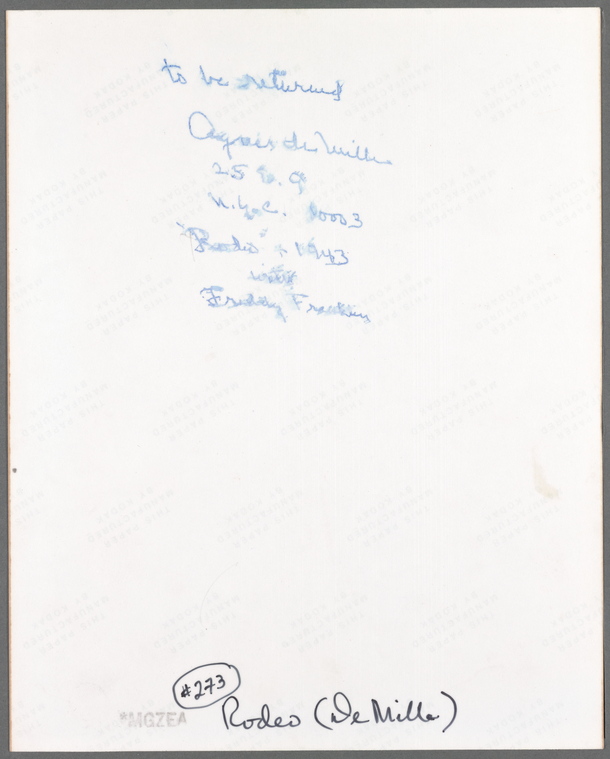 to be returned
Agnes de Mille
25 E. 9
N.Y.C. 10003
"Rodeo" 1943
with
Freddy Franklin
#273
*MGZEA Rodeo (De Mille)